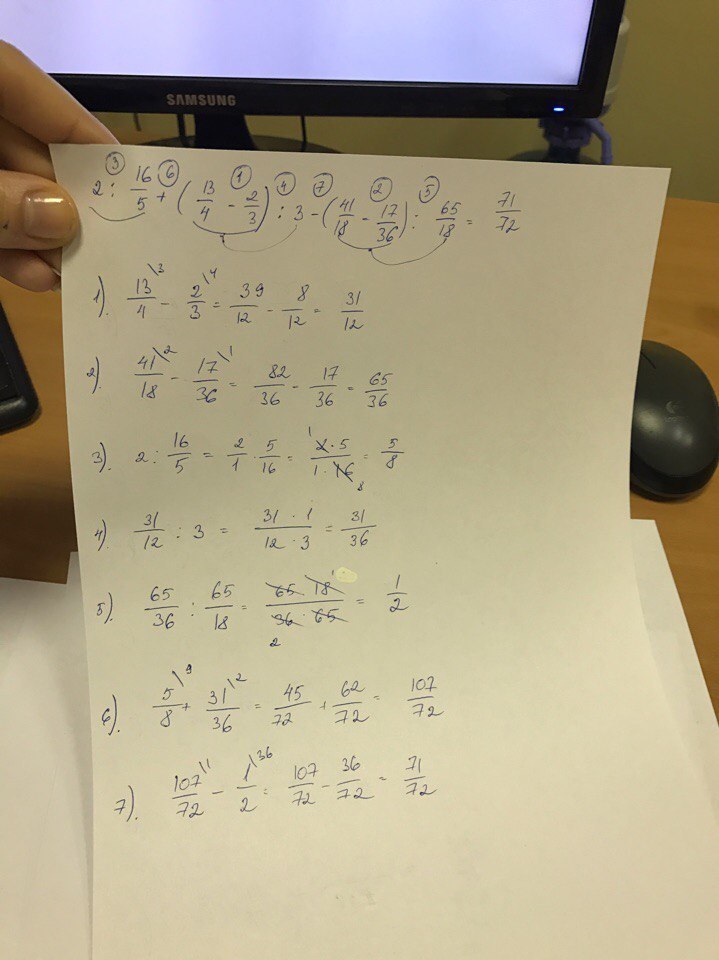 SAMSUNG
2 : 16/5 + (13/4 - 2/3) : 3 - (41/18 - 17/36) : 65/18 = 71/72
③ ⑥ ① ④ ⑦ ② ⑤
1). 13/4 \3 - 2/3 \4 = 39/12 - 8/12 = 31/12
2). 41/18 \2 - 17/36 \1 = 82/36 - 17/36 = 65/36
3). 2 : 16/5 = 2/1 · 5/16 = 2 · 5 / 1 · 16 = 5/8
4). 31/12 : 3 = 31 · 1 / 12 · 3 = 31/36
5). 65/36 : 65/18 = 65 · 18 / 36 · 65 = 1/2
6). 5/8 \9 + 31/36 \2 = 45/72 + 62/72 = 107/72
7). 107/72 \1 - 1/2 \36 = 107/72 - 36/72 = 71/72